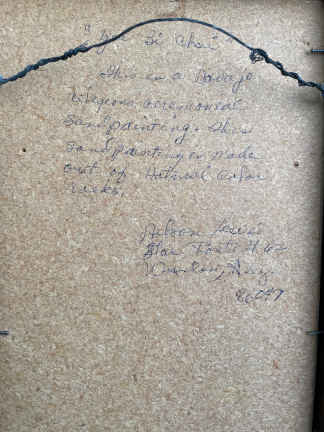 "Yei Bi Chai"
This is a Navajo
Religious ceremonial
Sandpainting. This
sandpainting is made
out of Natural Color
rocks.
Nelson Lewis
Star Route # 62
Winslow, Ariz
86047